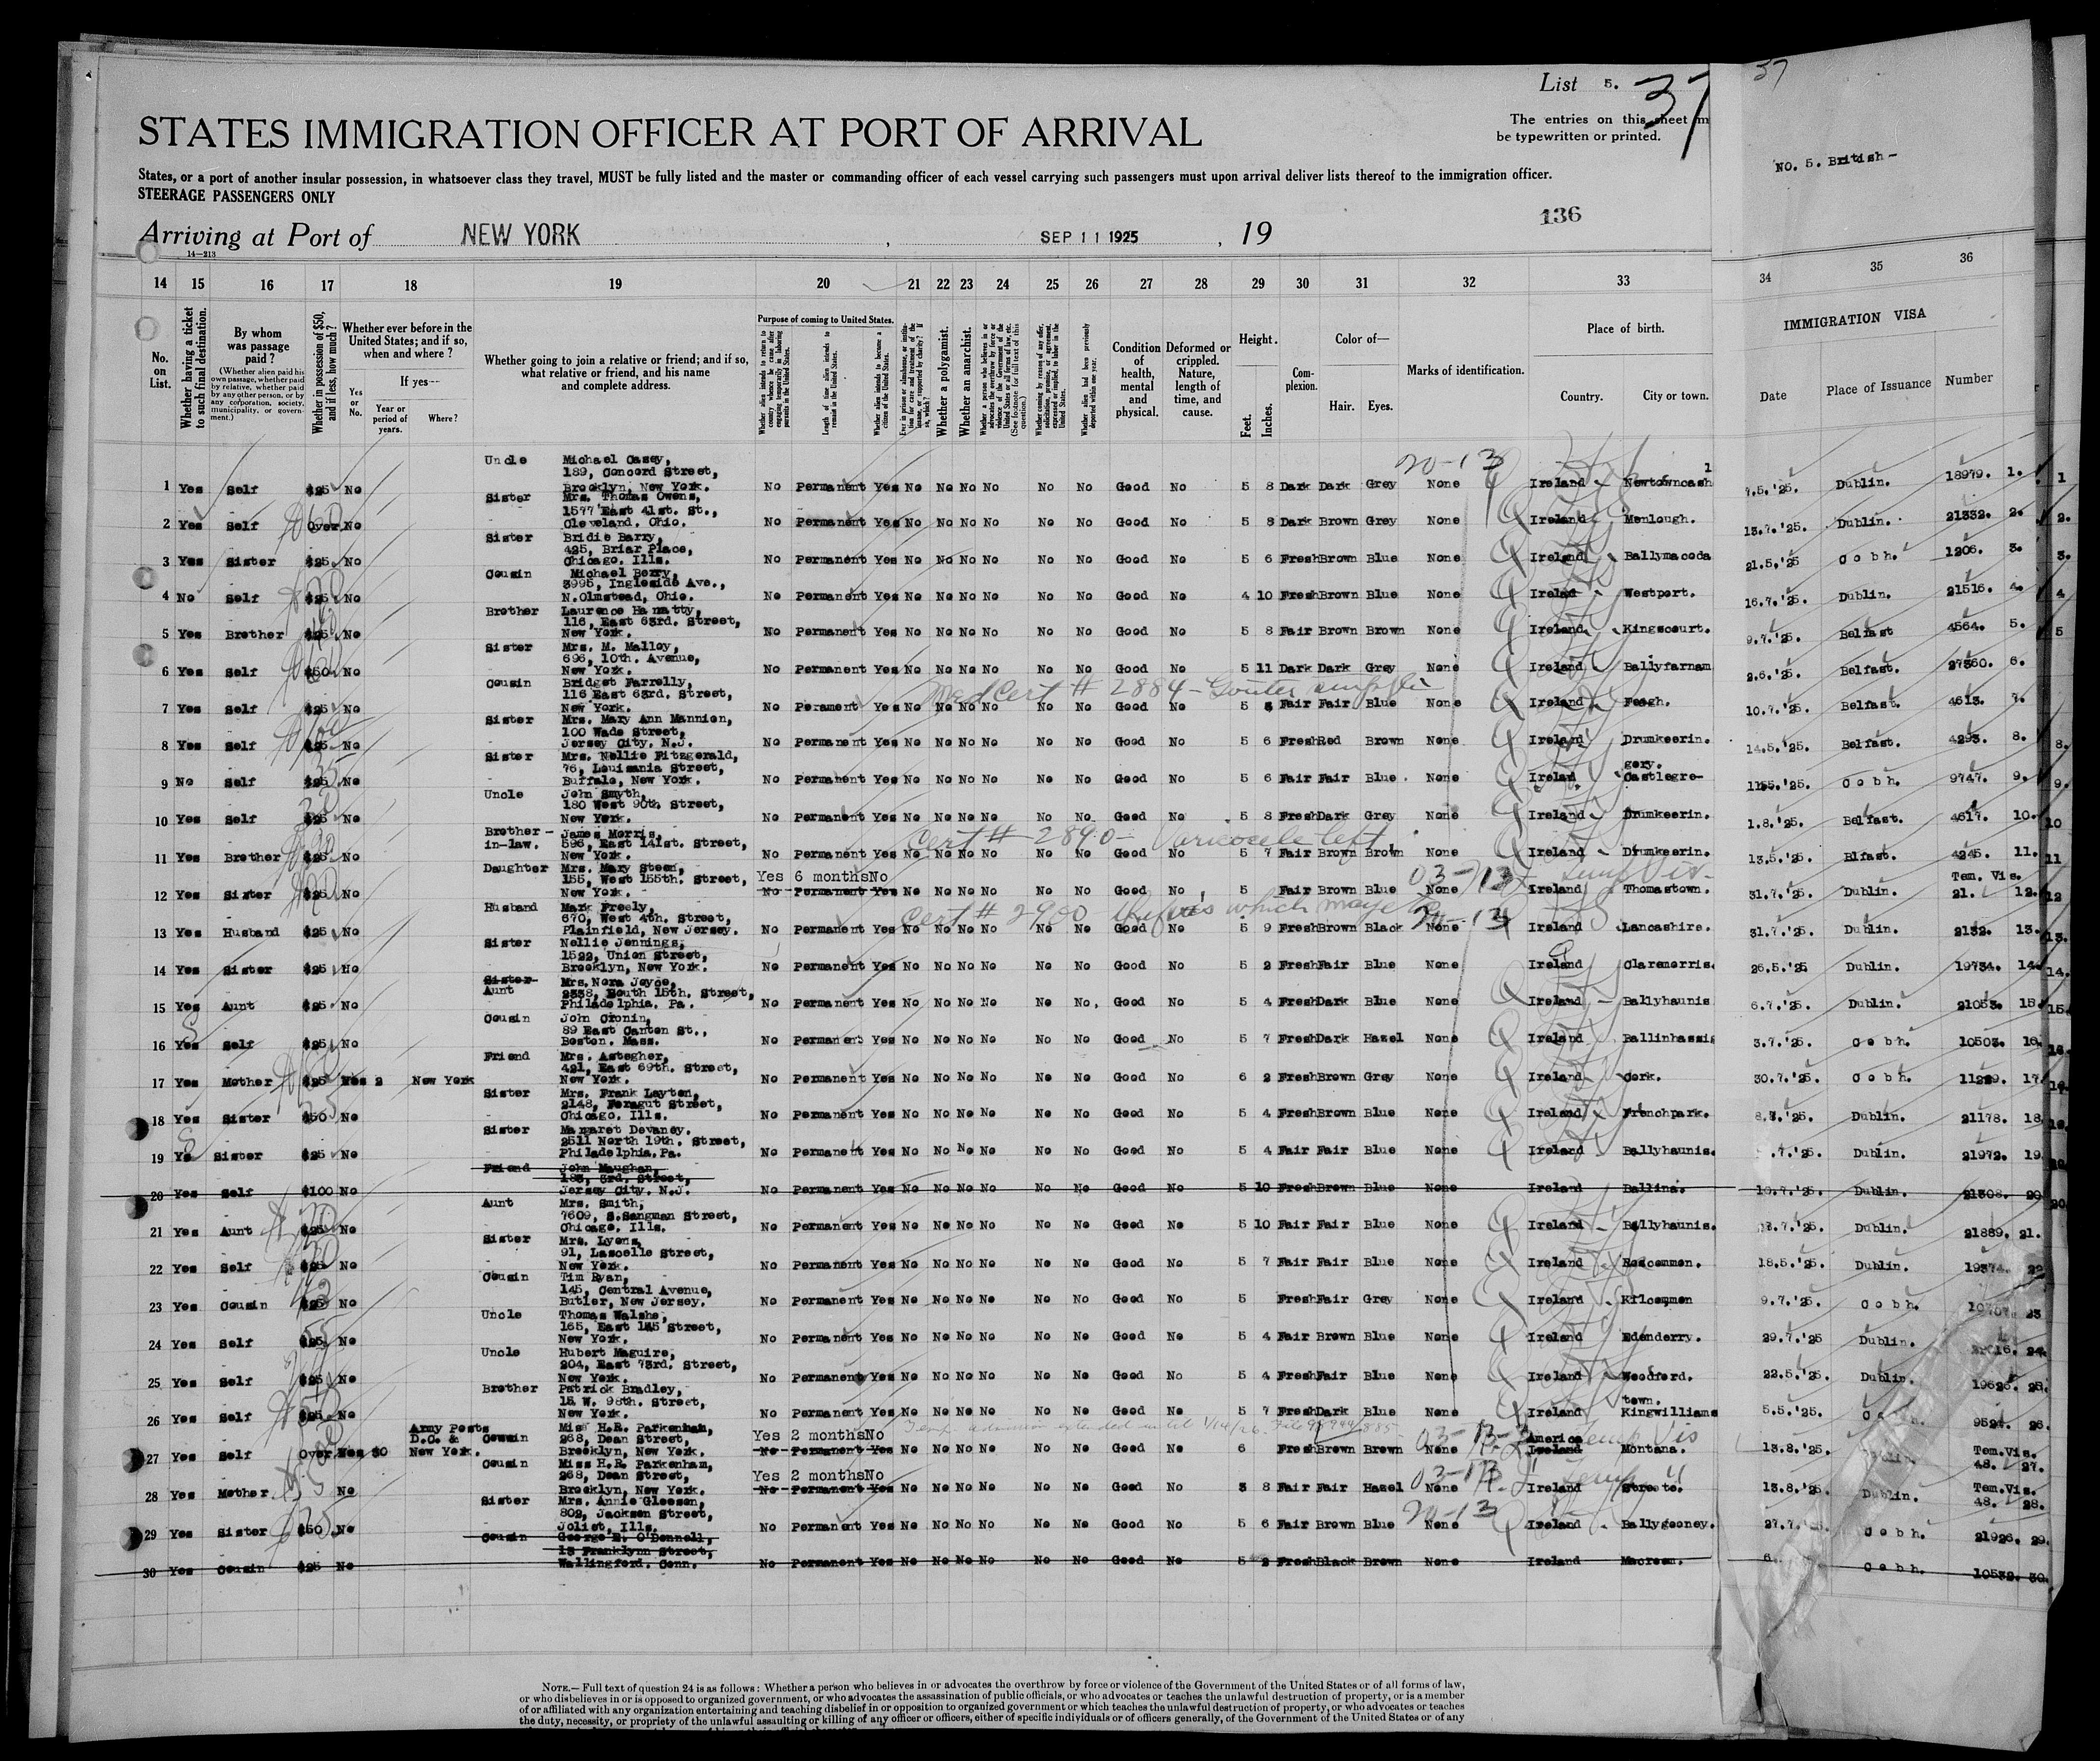 List 5. 37
37
STATES IMMIGRATION OFFICER AT PORT OF ARRIVAL
The entries on this sheet m
be typewritten or printed.
NO. 5. British -
States, or a port of another insular possession, in whatsoever class they travel, MUST be fully listed and the master or commanding officer of each vessel carrying such passengers must upon arrival deliver lists thereof to the immigration officer.
STEERAGE PASSENGERS ONLY
136
Arriving at Port of NEW YORK , SEP 11 1925 , 19
14—213
14 15 16 17 18 19 20 21 22 23 24 25 26 27 28 29 30 31 32 33 34 35 36
No. on List.
Whether having a ticket to such final destination.
By whom was passage paid?
(Whether alien paid his own passage, whether paid by relative, whether paid by any other person, or by any corporation, society, municipality, or government.)
Whether in possession of $50, and if less, how much?
Whether ever before in the United States; and if so, when and where?
Yes or No.
If yes—
Year or period of years.
Where?
Whether going to join a relative or friend; and if so, what relative or friend, and his name and complete address.
Purpose of coming to United States.
Whether alien intends to return to country whence he came after engaging temporarily in laboring pursuits in the United States.
Length of time alien intends to remain in the United States.
Whether alien intends to become a citizen of the United States.
Whether a polygamist.
Whether an anarchist.
Condition of health, mental and physical.
Deformed or crippled. Nature, length of time, and cause.
Height.
Feet.
Inches.
Complexion.
Color of—
Hair.
Eyes.
Marks of identification.
Place of birth.
Country.
City or town.
IMMIGRATION VISA
Date
Place of Issuance
Number
1 Yes Self $25 No Uncle Michael Casey, 189, Concord Street, Brooklyn, New York. No Permanent Yes No No No No No No Good No 5 8 Dark Dark Grey None Ireland Newtowncash 7.5.'25. Dublin. 18979. 1.
2 Yes Self Over No Sister Mrs. Thomas Owens, 1577 East 41st. St., Cleveland. Ohio. No Permanent Yes No No No No No No Good No 5 8 Dark Brown Grey None Ireland Menlough. 13.7.'25. Dublin. 21332. 2.
3 Yes Sister $25 No Sister Bridie Barry, 425, Briar Place, Chicago. Ills. No Permanent Yes No No No No No No Good No 5 6 Fresh Brown Blue None Ireland Ballymacoda 21.5.'25 Cobh. 1206. 3.
4 No Self $25 No Cousin Michael Berry, 3995, Ingleside Ave., N.Olmstead, Ohio. No Permanent Yes No No No No No No Good No 4 10 Fresh Brown Blue None Irelan Westport. 16.7.'25. Dublin. 21516. 4.
5 Yes Brother $25 No Brother Laurence Hanatty, 116, East 63rd. Street, New York. No Permanent Yes No No No No No No Good No 5 8 Fair Brown Brown None Ireland Kingscourt. 9.7.'25. Belfast 4564. 5.
6 Yes Self $50 No Sister Mrs. M. Malloy, 696, 10th. Avenue, New York. No Permanent Yes No No No No No No Good No 5 11 Dark Dark Grey None Ireland Ballyfarnam 2.6.'25. Belfast. 27360. 6.
Med Cert # 2884 - Goiter simple
7 Yes Self $25 No Cousin Bridget Farrelly, 116 East 63rd. Street, New York. No Perament Yes No No No No No No Good No 5 Fair Fair Blue None Ireland Feagh. 10.7.'25. Belfast. 4613. 7.
8 Yes Self $25 No Sister Mrs. Mary Ann Mannion, 100 Wade Street, Jersey City. N.J. No Permanent Yes No No No No No No Good No 5 6 Fresh Red Brown None Ireland Drumkeerin. 14.5.'25. Belfast. 4293. 8.
9 No Self $25 No Sister Mrs. Nellie Fitzgerald, 76, Louisiania Street, Buffalo, New York. No Permanent Yes No No No No No No Good No 5 6 Fair Fair Blue. None Irelan Castlegre- gory. Cobh. 9747. 9.
10 Yes Self $25 No Uncle John Smyth, 180 West 90th Street, New York. No Permanent Yes No No No No No No Good No 5 8 Fresh Dark Grey None Ireland Drumkeerin. 1.8.'25. Belfast. 4617. 10.
Cert # 2890 - Varicocele left
11 Yes Brother $25 No Brother-in-law. James Morris, 596, East 141st. Street, New York. No Permanent Yes No No No No No No Good No 5 7 Fair Brown Brown None Ireland Drumkeerin. 13.5.'25. Blfast. 4245. 11.
12 Yes Sister $25 No Daughter Mrs. Mary Steen, 155, West 155th. Street, New York. Yes 6 months No No Permanent Yes No No No No No No Good No 5 Fair Brown Blue None Ireland Thomastown. 31.7.'25. Dublin. Tem. Vis. 21. 12.
Cert # 2900
13 Yes Husband $25 No Husband Mark Freely, 670, West 4th. Street, Plainfield, New Jersey. No Permanent Yes No No No No No No Good No 5 9 Fresh Brown Black None Ireland Lancashire. 31.7.'25. Dublin. 2132. 13.
14 Yes Sister $25 No Sister Nellie Jennings, 1522, Union Street, Brooklyn, New York. No Permanent Yes No No No No No No Good No 5 2 Fresh Fair Blue None Ireland Claremorris. 26.5.'25 Dublin. 19734. 14.
15 Yes Aunt $25 No Sister- Aunt Mrs. Nora Joyce, 2338, South 15th. Street, Philadelphia, Pa. No Permanent Yes No No No No No No. Good No 5 4 Fresh Dark Blue None Ireland Ballyhaunis 6.7.'25. Dublin. 21053. 15.
16 Yes Self $25 No Cousin John Cronin, 89 East Canton St., Boston. Mass. No Permanent Yes No No No No No No Good No 5 7 Fresh Dark Hazel None Ireland Ballinhassig 3.7.'25. Cobh. 10503. 16.
17 Yes Mother $25 Yes 2 New York Friend Mrs. Astegher, 421, East 69th. Street, New York. No Permanent Yes No No No No No No Good No 6 2 Fresh Brown Grey None Ireland Cork. 30.7.'25. Cobh. 11229. 17.
18 Yes Sister $50 No Sister Mrs. Frank Layton, 2148, Feragut Street, Chicago. Ills. No Permanent Yes No No No No No No Good No 5 4 Fresh Brown Blue None Ireland Frenchpark. Dublin. 21178. 18.
19 Yes Sister $25 No Sister Margaret Devaney. 2511 North 19th. Street, Philadelphia. Pa. No Permanent Yes No No No No No No Good No 5 4 Fair Fair Blue None Ireland Ballyhaunis. .7.'25. Dublin. 21972. 19.
20 Yes Self $100 No Friend John Maughan, 183, 3rd. Street, Jersey City. N.J. No Permanent Yes No No No No No No Good No 5 10 Fresh Brown Blue None Ireland Ballina. Dublin. 21308. 20
21 Yes Aunt $25 No Aunt Mrs. Smith, 7609, S.Sangman Street, Chicago. Ills. No Permanent Yes No No No No No No Good No 5 10 Fair Fair Blue None Ireland Ballyhaunis. Dublin. 21889. 21.
22 Yes Self $25 No Sister Mrs. Lyons, 91, Lascelle Street, New York. No Permanent Yes No No No No No No Good No 5 7 Fair Fair Blue None Ireland Roscommon. 18.5.'25. Dublin. 19374. 22
23 Yes Cousin $25 No Cousin Tim Ryan, 145, Central Avenue, Butler, New Jersey. No Permanent Yes No No No No No No Good No 5 Fresh Fair Grey None Ireland Kilcommon 9.7.'25. Cobh. 23
24 Yes Self $25 No Uncle Thomas Walshe, 165, East Street, New York. No Permanent Yes No No No No No No Good No 5 4 Fair Brown Blue None Ireland Edenderry. 29.7.'25 Dublin. 24.
25 Yes Self $25 No Uncle Hubert Maguire, 204, East 73rd. Street, New York. No Permanent Yes No No No No No No Good No 5 4 Fresh Fair Blue None Ireland Woodford. 22.5.'25. Dublin. 19626. 25.
26 Yes Self $25 No Brother Patrick Bradley, 15 W. 98th. Street, New York. No Permanent Yes No No No No No No Good No 5 7 Fresh Dark Blue None Ireland Kingwilliams town. 5.5.'25. 26.
27 Yes Self Over Yes Army Posts D.C. & New York. Cousin Miss H.R. Parkenham, 268, Dean Street, Brooklyn, New York. Yes 2 months No No Permanent Yes No No No No No No Good No 6 Fresh Brown Brown None America Ireland Montana. 13.8.'25. Tem.Vis. 48. 27.
28 Yes Mother No Cousin Miss H.R. Parkenham, 268, Dean Street, Brooklyn, New York. Yes 2 months No No Permanent Yes No No No No No No Good No 3 8 Fair Fair Hazel None Ireland 13.8.'25. Dublin. Tem.Vis. 48. 28.
29 Yes Sister $50 No Sister Mrs. Annie Gleeson, 802, Jackson Street, Joliet, Ills. No Permanent Yes No No No No No No Good No 5 6 Fair Brown Blue None Ireland Ballygeoney. 27.7. Cobh. 21926. 29.
30 Yes Cousin $25 No Cousin George E. O'Donnell, 13 Franklynn Street, Wallingford. Conn. No Permanent Yes No No No No No No Good No 5 2 Fresh Black Brown None Ireland Macroom. Cobh. 10532. 30.
NOTE.—Full text of question 24 is as follows: Whether a person who believes in or advocates the overthrow by force or violence of the Government of the United States or of all forms of law,
or who disbelieves in or is opposed to organized government, or who advocates the assassination of public officials, or who advocates or teaches the unlawful destruction of property, or is a member
of or affiliated with any organization entertaining and teaching disbelief in or opposition to organized government or which teaches the unlawful destruction of property, or who advocates or teaches
the duty, necessity, or propriety of the unlawful assaulting or killing of any officer or officers, either of specific individuals or of officers generally, of the Government of the United States or of any